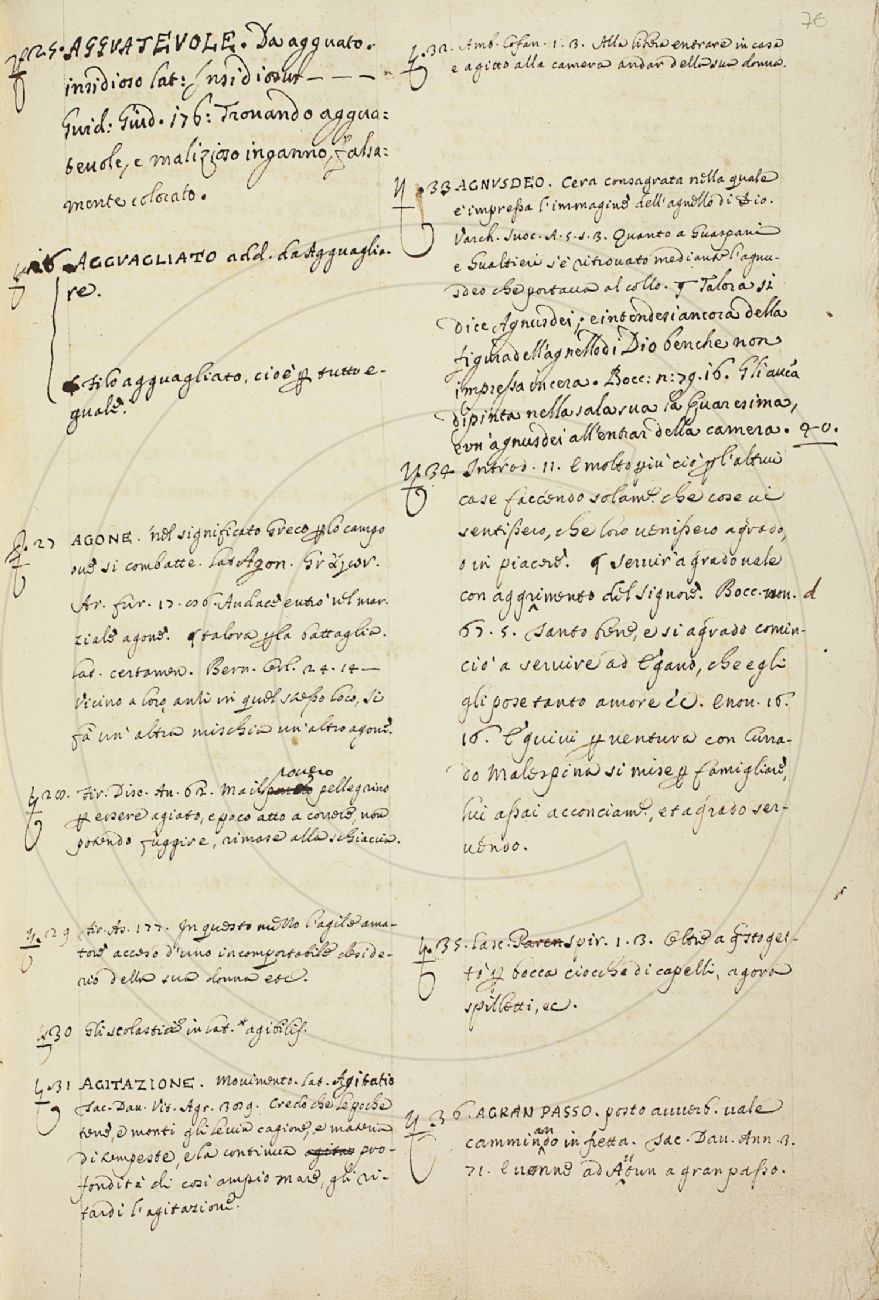 76
25. AGGUATEVOLE. Da agguato.
insidioso lat: Insidiosus – – – –
Guid: Giud. 176: Trovando aggua=
tevole, e malizioso inganno, falsa=
mente colocato.
26 AGGVAGLIATO add. da Agguaglia-
re.
Filo agguagliato, cioè p tutto e-
guale.
27 AGONE. nel significato Greco plo campo
ove si combatte. lat. Agon. Gr. ἀγων.
Ar. fur. 17. 86. Andace entrò nel mar-
ziale agone. ¶ talora pla battaglia.
lat. certamen. Bern. Orl. 24. 14 —
Vicino a loro, anzi in quel stesso loco, si
fa un' altra mischia un' altro agone.
28. Fir. Disc. An. 62. Ma il povero pellegrino
p essere agiato, e poco atto a correre, non
potendo fuggire, rimase alla schiaccia.
29 Fir. As. 177. In questo mezzo l'agile ama-
tore acceso d'uno incomportabile deside-
rio della sua donna etc.
30 Gli scolastici in lat. * agibilis.
31 AGITAZIONE. Movimento. lat. Agitatio
Tac. Dav. Vit. Agr. 389. Credo che le poche
terre, e monti gli levin cagione, e materia
di tempeste, e la continua pro-
fondità di così ampio mare, gli ri-
tardi l'agitazione.
32. Amb. Cofan. 1. 3. Alla libera entrare in casa
e agitto alla camera andar della sua donna.
33 AGNVSDEO. Cera consagrata nella quale
e' impressa l'immagine dell'agnello di Dio.
Varch. Suoc. A. 5. s. 3. Quanto a Guasparri
e Gualtieri s'è ritrovato mediante l'agnu-
sdeo che portava al collo. ¶ Talora si
dice Agnusdei, e intendesi ancora della
figura dell'agnello di Dio benche non
impressa in cera. Bocc: n: 79. 16. Gli avea
dipinta nella sala sua la Quaresima,
ed un' agnusdei all'entrar della camera. 20.
34 Introd. 11. E molto più ciò pl'altrui
case faccendo solam.e che cose vi
sentissero, che loro venissero agrado,
o in piacere. ¶ servir' a grado vale
con aggrimento del signore. Bocc. nov. d
67. 5. Tanto bene, e si agrado comin-
ciò a servire ad Egano, che egli
gli pose tanto amore &c. E nov. 16.
16. E quivi p ventura con Curra-
do Malespina si mise p famigliare,
lui assai acconciam.e, et agrado ser-
vendo.
35. Lasc. Paren spir. 1. 3. Oltre a q.sto get-
tò p bocca ciocche di capelli, agora
spilletti, ec.
36. AGRAN PASSO. posto avverb. vale
camminando in fretta. Tac. Dav. Ann. 3.
71. E venne ad Attun a gran passo.